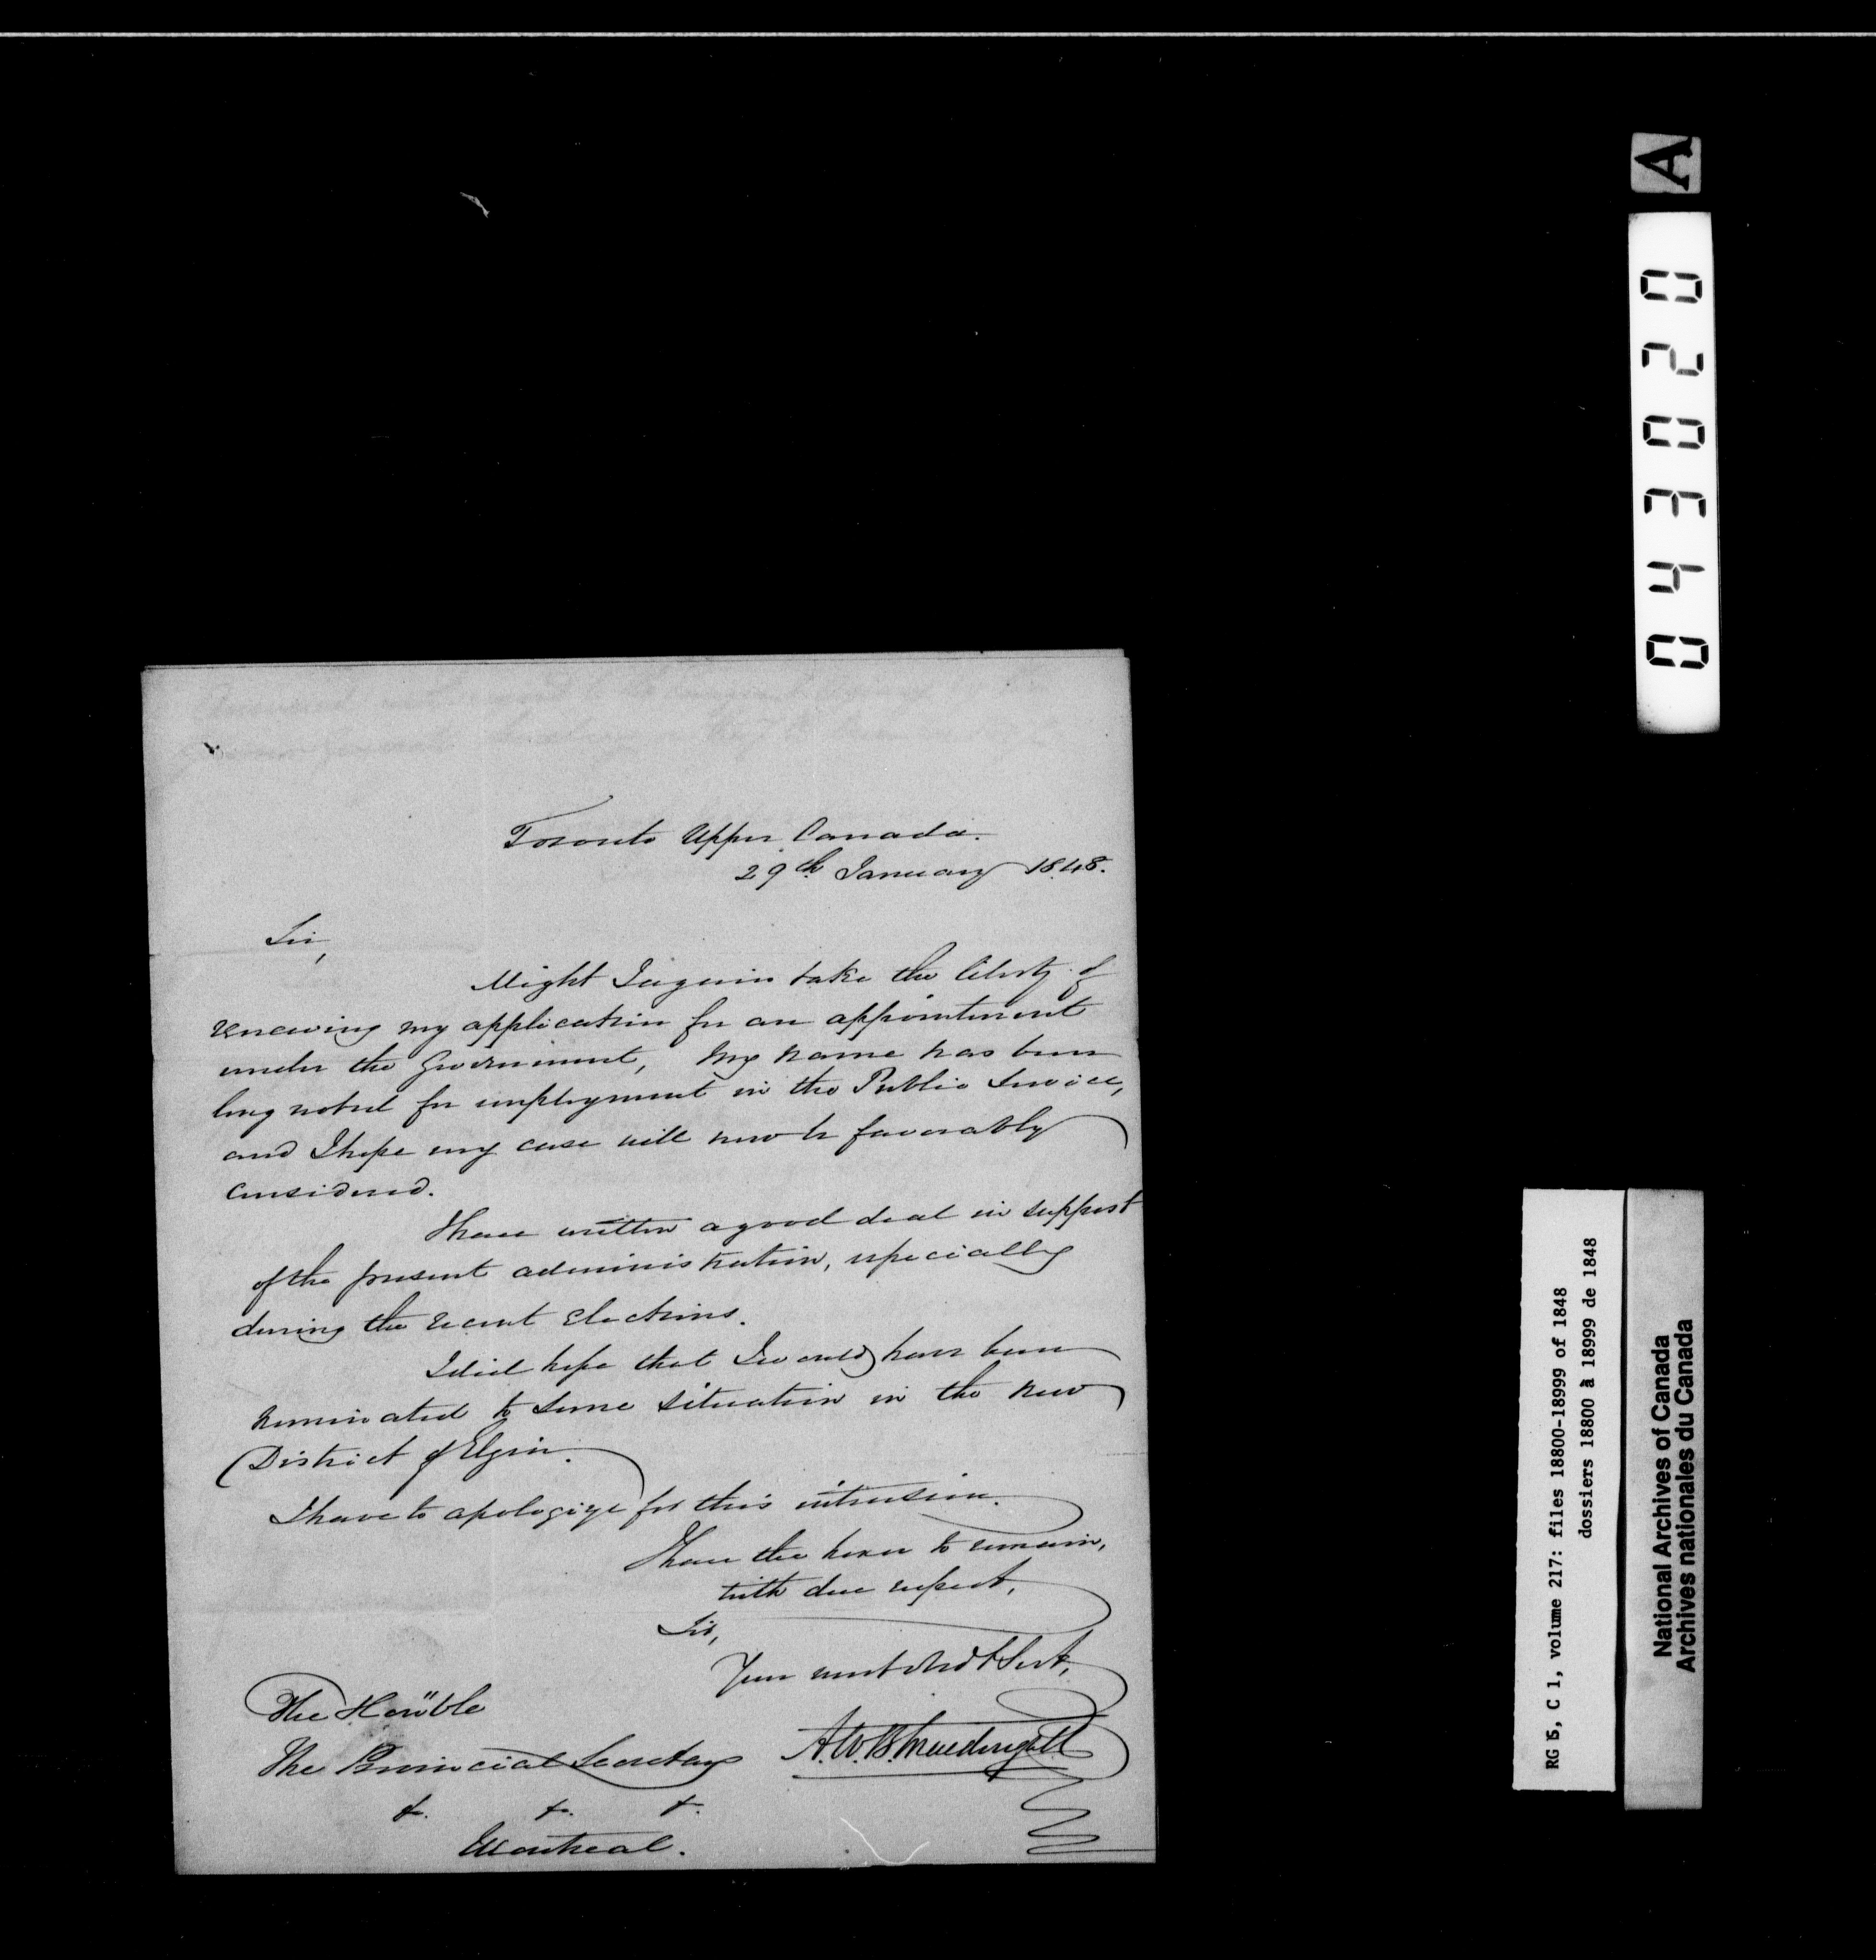 Toronto Upper Canada.
29th January 1848.
Sir,
Might I again take the liberty of
renewing my application for an appointment
under the Government, My name has been
long noted for employment in the Public Service,
and I hope my case will now be favorably
considered.
I have written a good deal in support
of the present administration, especially
during the recent elections.
I did hope that I would have been
nominated to some situation in the new
District of Elgin.
I have to apologize for this intrusion.
I have the honor to remain,
with due respect,
Sir,
Your most obedt Sert,
The Hon'ble
The Provincial Secretary
&. &. &.
Montreal.
A
020340
RG 5, C 1, volume 217: files 18800-18999 of 1848
dossiers 18800 à 18999 de 1848
National Archives of Canada
Archives nationales du Canada